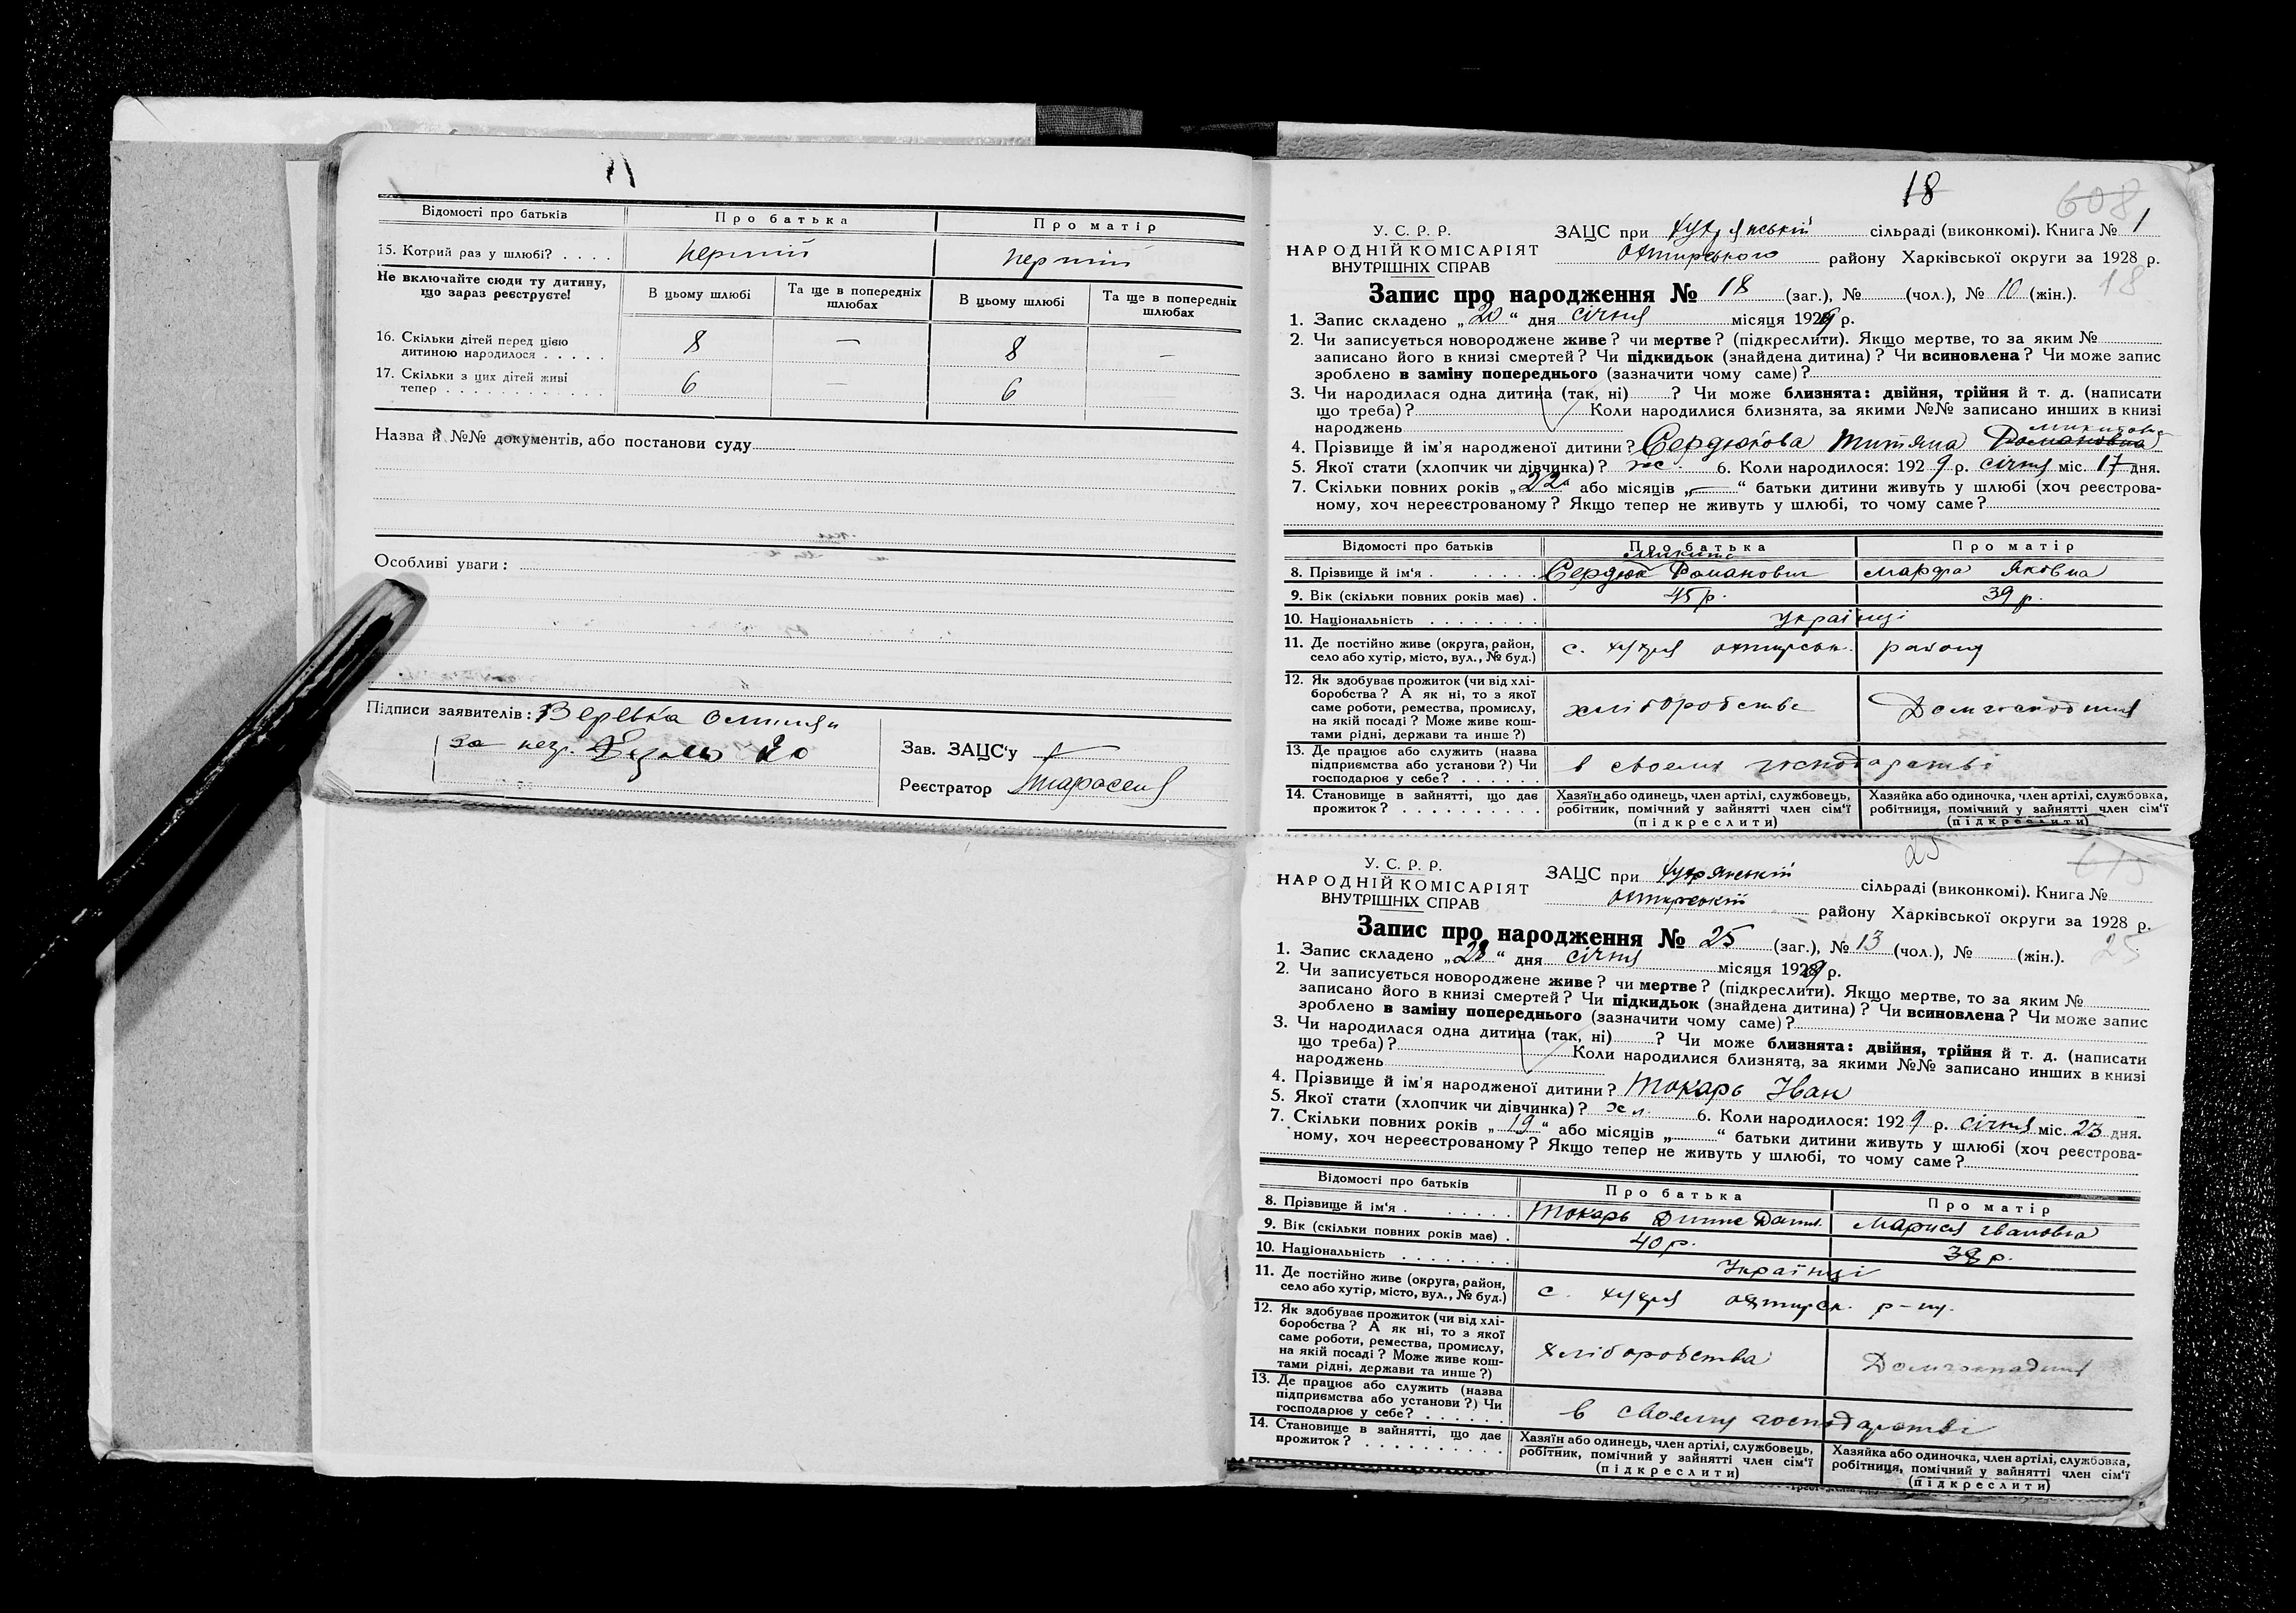 Відомості про батьків Про батька Про матір
15. Котрий раз у шлюбі? . . . . перший перший
Не включайте сюди ту дитину, що зараз реєструєте!
В цьому шлюбі Та ще в попередніх шлюбах В цьому шлюбі Та ще в попередніх шлюбах
16. Скільки дітей перед цією
дитиною народилося . . . . . 8 — 8 —
17. Скільки з цих дітей живі
тепер . . . . . . . . . . . . 6 — 6
Назва й №№ документів, або постанови суду
Особливі уваги:
Підписи заявителів: Веревка
за нег.
Зав. ЗАЦС'у
Реєстратор
18
608
У. С. Р. Р.
НАРОДНІЙ КОМІСАРІЯТ
ВНУТРІШНІХ СПРАВ
ЗАЦС при сільраді (виконкомі). Книга № 1
району Харківської округи за 1928 р.
18
Запис про народження № 18 (заг.), № (чол.), № 10 (жін.).
1. Запис складено „20“ дня січня місяця 1929 р.
2. Чи записується новороджене живе? чи мертве? (підкреслити). Якщо мертве, то за яким №
записано його в книзі смертей? Чи підкидьок (знайдена дитина)? Чи всиновлена? Чи може запис
зроблено в заміну попереднього (зазначити чому саме)?
3. Чи народилася одна дитина (так, ні) ? Чи може близнята: двійня, трійня й т. д. (написати
що треба)? Коли народилися близнята, за якими №№ записано инших в книзі
народжень
4. Прізвище й ім'я народженої дитини? Сердюкова Титяна Романовна
5. Якої стати (хлопчик чи дівчинка)? ж. 6. Коли народилося: 1929 р. січня міс. 17 дня.
7. Скільки повних років „22“ або місяців „—“ батьки дитини живуть у шлюбі (хоч реєстрова-
ному, хоч нереєстрованому? Якщо тепер не живуть у шлюбі, то чому саме?
Відомості про батьків Про батька Про матір
Микита
8. Прізвище й ім'я . . . . . . Сердюк Романович Марфа Яковна
9. Вік (скільки повних років має) . 45 р. 39 р.
10. Національність . . . . . . . . Українці
11. Де постійно живе (округа, район,
село або хутір, місто, вул., № буд.) с. району
12. Як здобуває прожиток (чи від хлі-
боробства? А як ні, то з якої
саме роботи, ремества, промислу,
на якій посаді? Може живе кош-
тами рідні, держави та инше?) Домгосподиня
13. Де працює або служить (назва
підприємства або установи?) Чи
господарює у себе? . . . . . . в своему господарстві
14. Становище в зайнятті, що дає
прожиток? . . . . . . . . . .
Хазяїн або одинець, член артілі, службовець,
робітник, помічний у зайнятті член сім'ї
(підкреслити)
Хазяйка або одиночка, член артілі, службовка,
робітниця, помічний у зайнятті член сім'ї
(підкреслити)
25
У. С. Р. Р.
НАРОДНІЙ КОМІСАРІЯТ
ВНУТРІШНІХ СПРАВ
ЗАЦС при сільраді (виконкомі). Книга №
району Харківської округи за 1928 р.
25
Запис про народження № 25 (заг.), № 13 (чол.), № (жін.).
1. Запис складено „28“ дня січня місяця 1929 р.
2. Чи записується новороджене живе? чи мертве? (підкреслити). Якщо мертве, то за яким №
записано його в книзі смертей? Чи підкидьок (знайдена дитина)? Чи всиновлена? Чи може запис
зроблено в заміну попереднього (зазначити чому саме)?
3. Чи народилася одна дитина (так, ні) ? Чи може близнята: двійня, трійня й т. д. (написати
що треба)? Коли народилися близнята, за якими №№ записано инших в книзі
народжень
4. Прізвище й ім'я народженої дитини? Токарь Іван
5. Якої стати (хлопчик чи дівчинка)? хл. 6. Коли народилося: 1929 р. січня міс. 23 дня.
7. Скільки повних років „19“ або місяців „ “ батьки дитини живуть у шлюбі (хоч реєстрова-
ному, хоч нереєстрованому? Якщо тепер не живуть у шлюбі, то чому саме?
Відомості про батьків Про батька Про матір
8. Прізвище й ім'я . . . . . . Токарь Мария Івановна
9. Вік (скільки повних років має) . 40 р. 38 р.
10. Національність . . . . . . . . Українці
11. Де постійно живе (округа, район,
село або хутір, місто, вул., № буд.) с. р-ну.
12. Як здобуває прожиток (чи від хлі-
боробства? А як ні, то з якої
саме роботи, ремества, промислу,
на якій посаді? Може живе кош-
тами рідні, держави та инше?) хліборобства
13. Де працює або служить (назва
підприємства або установи?) Чи
господарює у себе? . . . . . . в своему господарстві
14. Становище в зайнятті, що дає
прожиток? . . . . . . . . . .
Хазяїн або одинець, член артілі, службовець,
робітник, помічний у зайнятті член сім'ї
(підкреслити)
Хазяйка або одиночка, член артілі, службовка,
робітниця, помічний у зайнятті член сім'ї
(підкреслити)